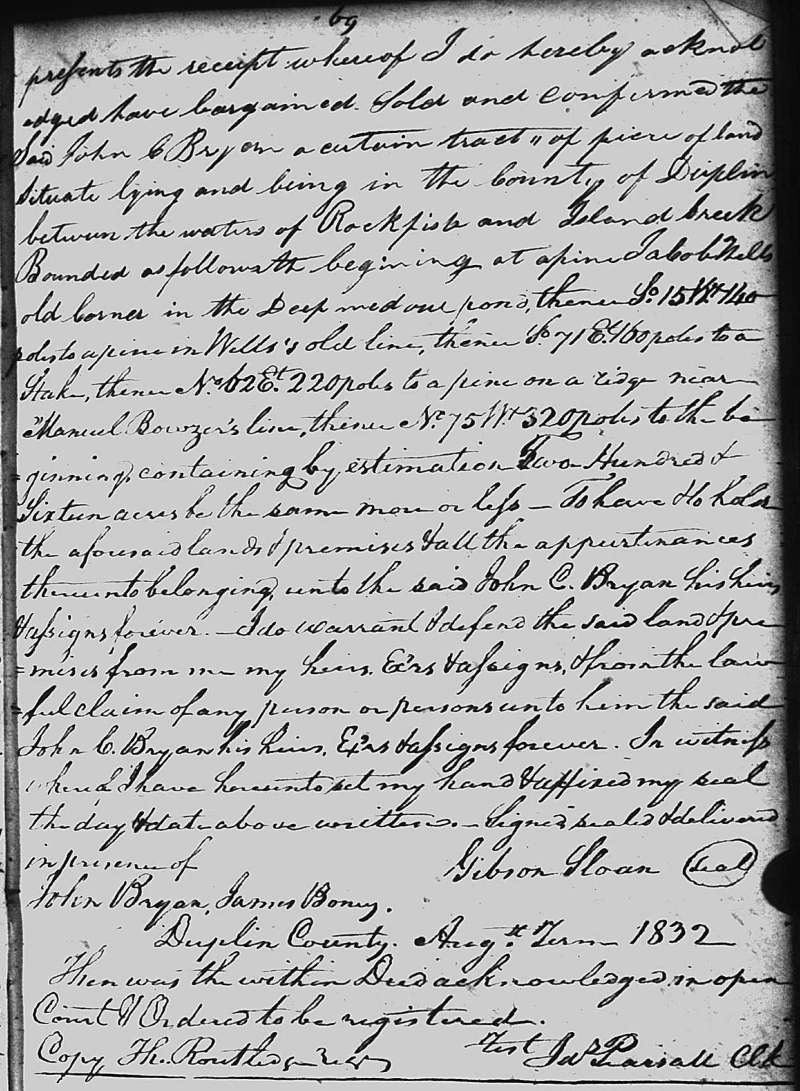 69
presents the receipt whereof I do hereby acknol
edged have bargained. Sold and confirmed the
Said John C Bryan a certain tract " of piece of land
Situate lying and being in the County of Duplin
between the waters of Rockfish and Island Creek
Bounded as followeth begining at a pine Jacob Wells
old corner in the Deep medow pond, thence So. 15 Wt 140
poles to a pine in Wells's old line, thence So. 71 E. 160 poles to a
Stake, thence No. 62 Et. 220 poles to a pine on a ridge near
Manuel Bowzer's line, thence No. 75 Wt 320 poles to the be
=ginning, containing by estimation Two Hundred &
Sixteen acres be the same more or less — To have & to hold
the aforesaid lands & premises & all the appurtinances
thereunto belonging, unto the said John C. Bryan his heirs
& assigns forever. — I do warrant & defend the said land & pre
=mises from me my heirs, Exrs & assigns, & from the law
=ful claim of any person or persons unto him the said
John C. Bryan his heirs, Exrs & assigns forever. In witness
I have hereunto set my hand & affixed my seal
the day & date above written. — Signed sealed & delivered
in presence of Gibson Sloan (seal)
John Bryan, James Boney.
Duplin County. Augst. Term 1832
Then was the within Deed acknowledged in open
Court & Ordered to be registered.
Test Jas Pearsall Clk
Copy Th. Routledge